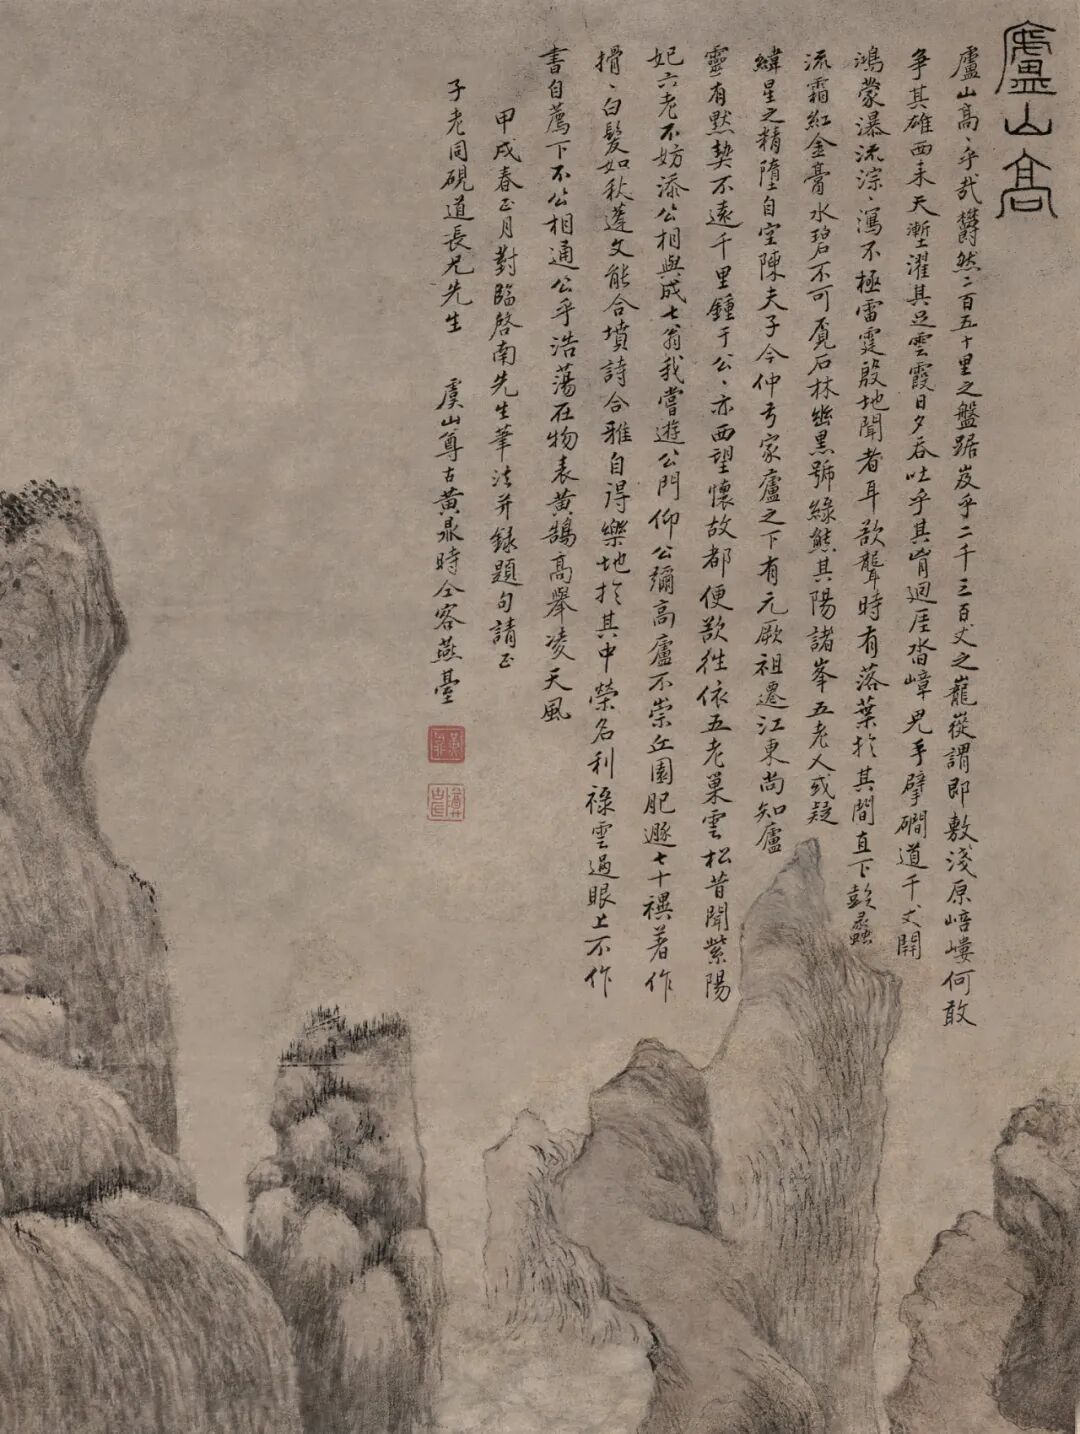 廬山高
廬山高、乎哉欝然二百五十里之盤踞岌乎二千三百丈之巃嵸謂即敷淺原㟝嶁何敢
爭其雄西来天塹濯其足雲霞日夕吞吐乎其胷廻厓沓嶂鬼手擘磵道千丈開
鴻蒙瀑流淙、瀉不極雷霆殷地聞者耳欲聾時有落葉於其間直下彭蠡
流霜紅金膏水碧不可覔石林幽黑號綠熊其陽諸峯五老人或疑
緯星之精墮自空陳夫子今仲弓家廬之下有元厥祖遷江東尚知廬
靈有默契不遠千里鍾于公、亦西望懷故都便欲徃依五老巢雲松昔聞紫陽
妃六老不妨添公相與成七翁我嘗遊公門仰公彌高廬不崇丘園肥遯七十禩著作
搰、白髮如秋蓬文能合墳詩合雅自得樂地於其中榮名利祿雲過眼上不作
書自薦下不公相通公乎浩蕩在物表黃鵠高舉凌天風
甲戌春正月對臨啓南先生筆法并錄題句請正
子老同硯道長兄先生 虞山尊古黃鼎時仝客燕臺
黃鼎